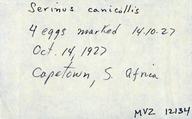 Serinus canicollis
4 eggs marked 14.10.27
Oct. 14, 1927
Capetown, S. Africa
MVZ 12134